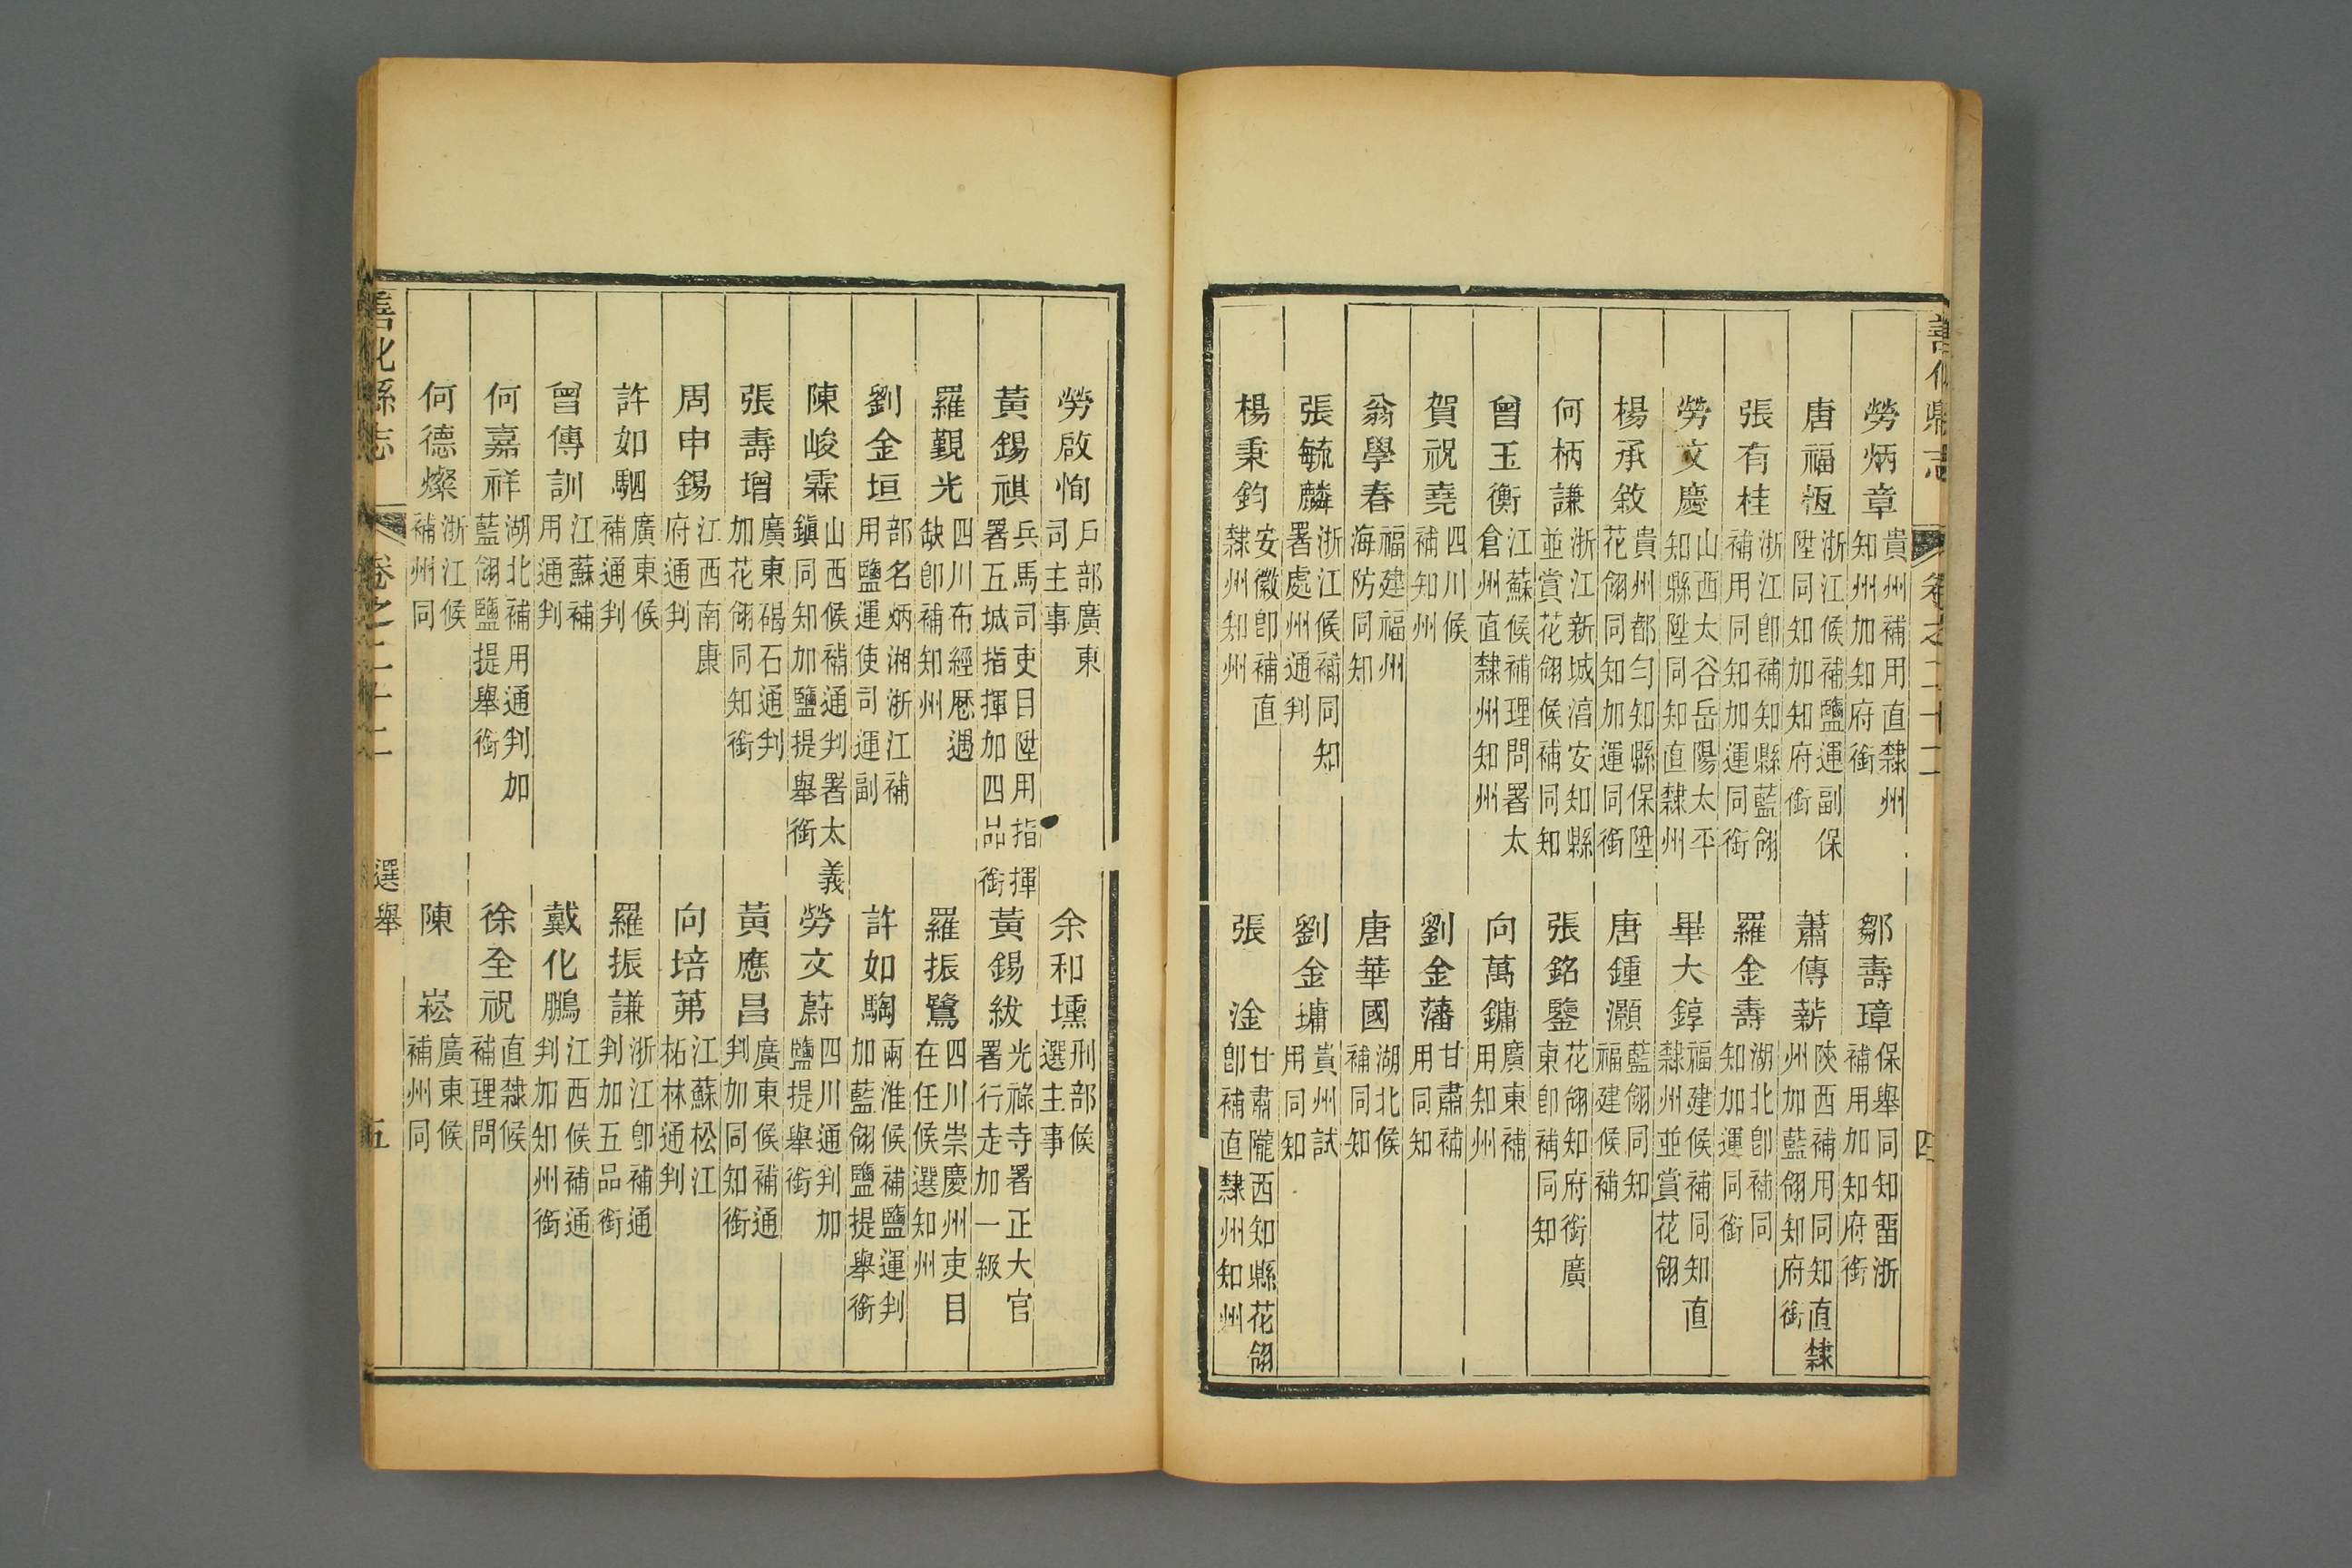 善化縣志 卷之二十二 四
勞炳章 貴州補用直隸州知州加知府銜
鄒壽璋 保舉同知畱浙補用加知府銜
唐福恆 浙江候補鹽運副保陞同知加知府銜
蕭傳薪 陝西補用同知直隸州加藍翎知府銜
張有桂 浙江卽補知縣藍翎補用同知加運同銜
羅金壽 湖北卽補同知加運同銜
勞文慶 山西太谷岳陽太平知縣陞同知直隸州
畢大錞 福建候補同知直隸州並賞花翎
楊承敘 貴州都勻知縣保陞花翎同知加運同銜
唐鍾灝 藍翎同知福建候補
何柄謙 浙江新城淯安知縣並賞花翎候補同知
張銘鑒 花翎知府銜廣東卽補同知
曾玉衡 江蘇候補理問署太倉州直隸州知州
向萬鏞 廣東補用知州
賀祝堯 四川候補知州
劉金藩 甘肅補用同知
翁學春 福建福州海防同知
唐華國 湖北候補同知
張毓麟 浙江候補同知署處州通判
劉金墉 貴州試用同知
楊秉鈞 安徽卽補直隸州知州
張淦 甘肅隴西知縣花翎卽補直隸州知州
勞啟恂 戶部廣東司主事
余和壎 刑部候選主事
黃錫祺 兵馬司吏目陞用指揮署五城指揮加四品銜
黃錫紱 光祿寺署正大官署行走加一級
羅覲光 四川布經歷遇缺卽補知州
羅振鷺 四川崇慶州吏目在任候選知州
劉金垣 部名炳湘浙江補用鹽運使司運副
許如騊 兩淮候補鹽運判加藍翎鹽提舉銜
陳峻霖 山西候補通判署太義鎮同知加鹽提舉銜
勞文蔚 四川通判加鹽提舉銜
張壽增 廣東碣石通判加花翎同知銜
黃應昌 廣東候補通判加同知銜
周申錫 江西南康府通判
向培茀 江蘇松江柘林通判
許如駟 廣東候補通判
羅振謙 浙江卽補通判加五品銜
曾傳訓 江蘇補用通判
戴化鵬 江西候補通判加知州銜
何嘉祥 湖北補用通判加藍翎鹽提舉銜
徐全祝 直隸候補理問
何德燦 浙江候補州同
陳崧 廣東候補州同
善化縣志 卷之二十二 選舉 五